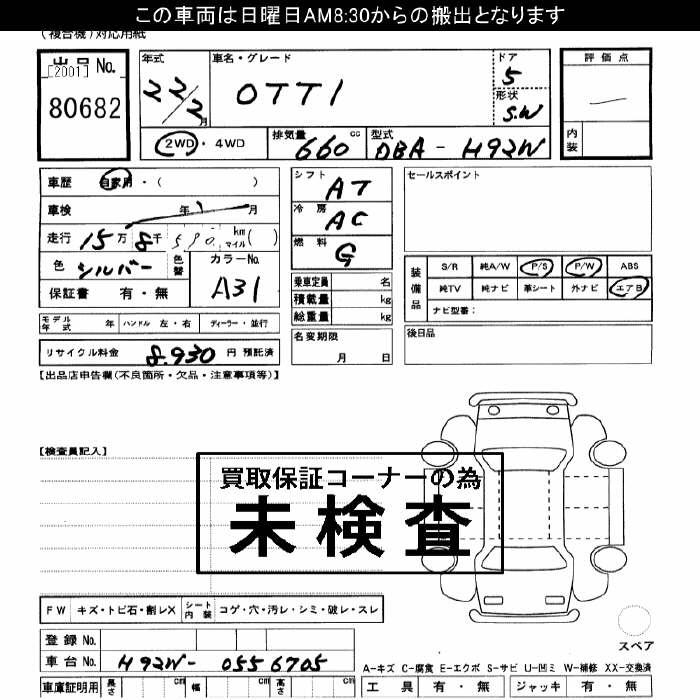 この車両は日曜日AM8:30からの搬出となります
(複合機)対応用紙
出品 No.
[2001]
80682
年式
22/2
月
車名・グレード
OTTI
ドア
5
形状
S.W
評価点
内装
2WD・4WD
排気量
660 cc
型式
DBA - H92W
車歴 自家用・( )
車検 年 月
走行 15万 8千 590 km マイル( )
色 シルバー 色替
カラーNo.
A31
保証書 有・無
シフト AT
冷房 AC
燃料 G
乗車定員 名
積載量 kg
総重量 kg
セールスポイント
装備品
S/R 純A/W P/S P/W ABS
純TV 純ナビ 革シート 外ナビ エアB
ナビ型番:
モデル年式 年 ハンドル 左・右 ディーラー・並行
名変期限
月 日
後日品
リサイクル料金 8,930 円 預託済
【出品店申告欄(不良箇所・欠品・注意事項等)】
【検査員記入】
買取保証コーナーの為
未検査
FW キズ・トビ石・割レX シート内装 コゲ・穴・汚レ・シミ・破レ・スレ
登録 No.
車台 No. H92W- 0556705
スペア
A-キズ C-腐食 E-エクボ S-サビ U-凹ミ W-補修 XX-交換済
車庫証明用 長さ cm 幅 cm 高さ cm
工具 有・無 ジャッキ 有・無